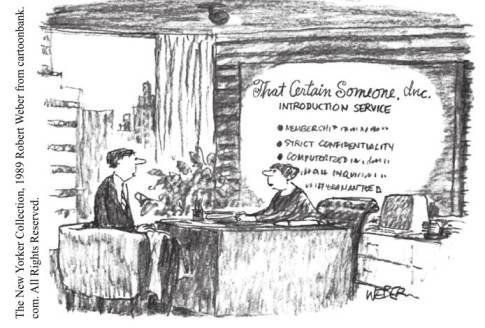 The New Yorker Collection, 1989 Robert Weber from cartoonbank.
com. All Rights Reserved.
That Certain Someone, Inc.
INTRODUCTION SERVICE
• MEMBERSHIP
• STRICT CONFIDENTIALITY
• COMPUTERIZED
WEBER